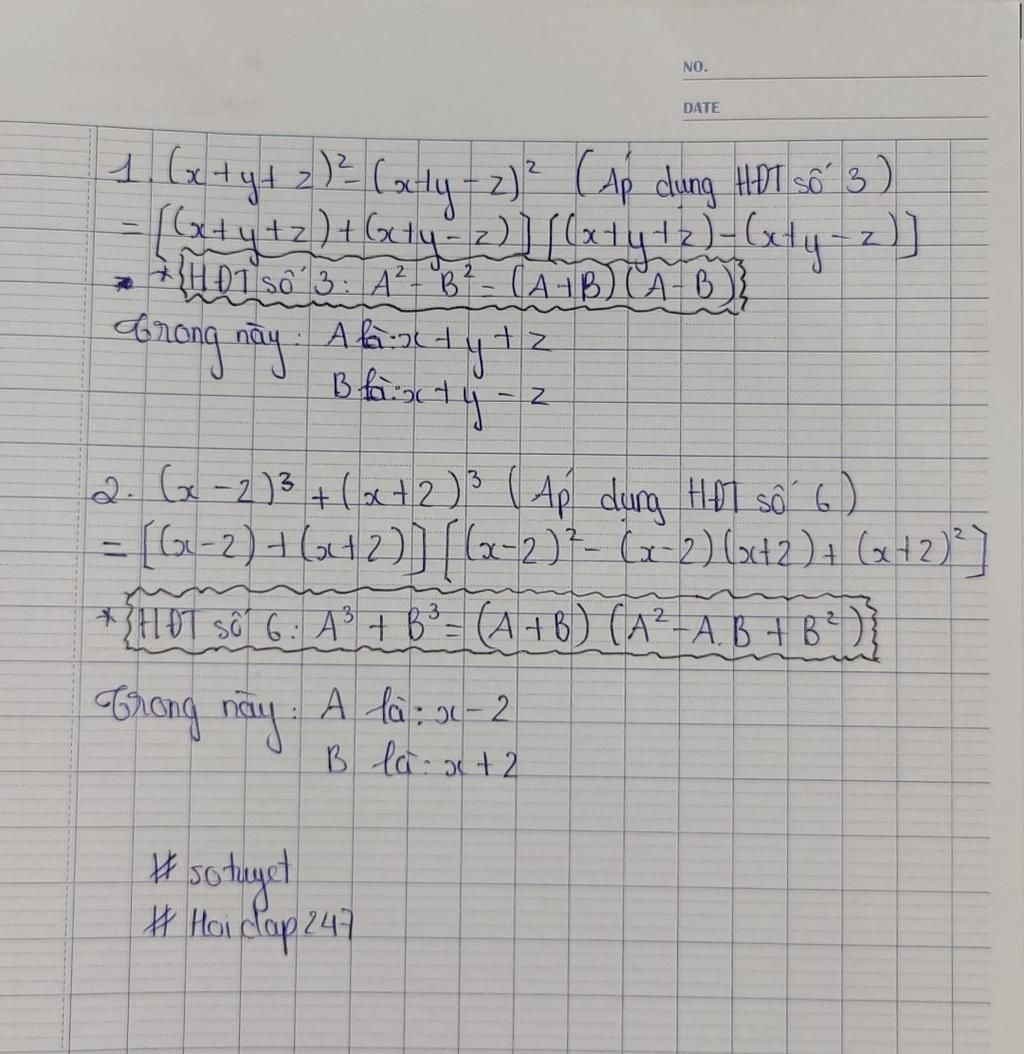 NO.
DATE
1. (x+y+z)² - (x+y-z)² (Áp dụng HĐT số 3)
= [(x+y+z)+(x+y-z)][(x+y+z)-(x+y-z)]
* {HĐT số 3: A² - B² = (A+B)(A-B)}
Trong này: A là: x+y+z
B là: x+y-z
2. (x-2)³ + (x+2)³ (Áp dụng HĐT số 6)
= [(x-2)+(x+2)][(x-2)² - (x-2)(x+2) + (x+2)²]
* {HĐT số 6: A³ + B³ = (A+B) (A² - A.B + B²)}
Trong này: A là: x-2
B là: x+2
# sotuyet
# Hoidap247